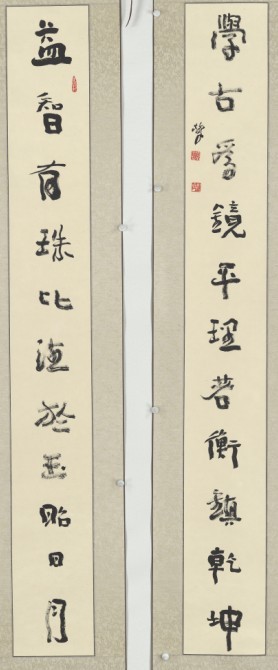 益智有珠比德於玉昭日月
學古爲鏡平理若衡鎮乾坤